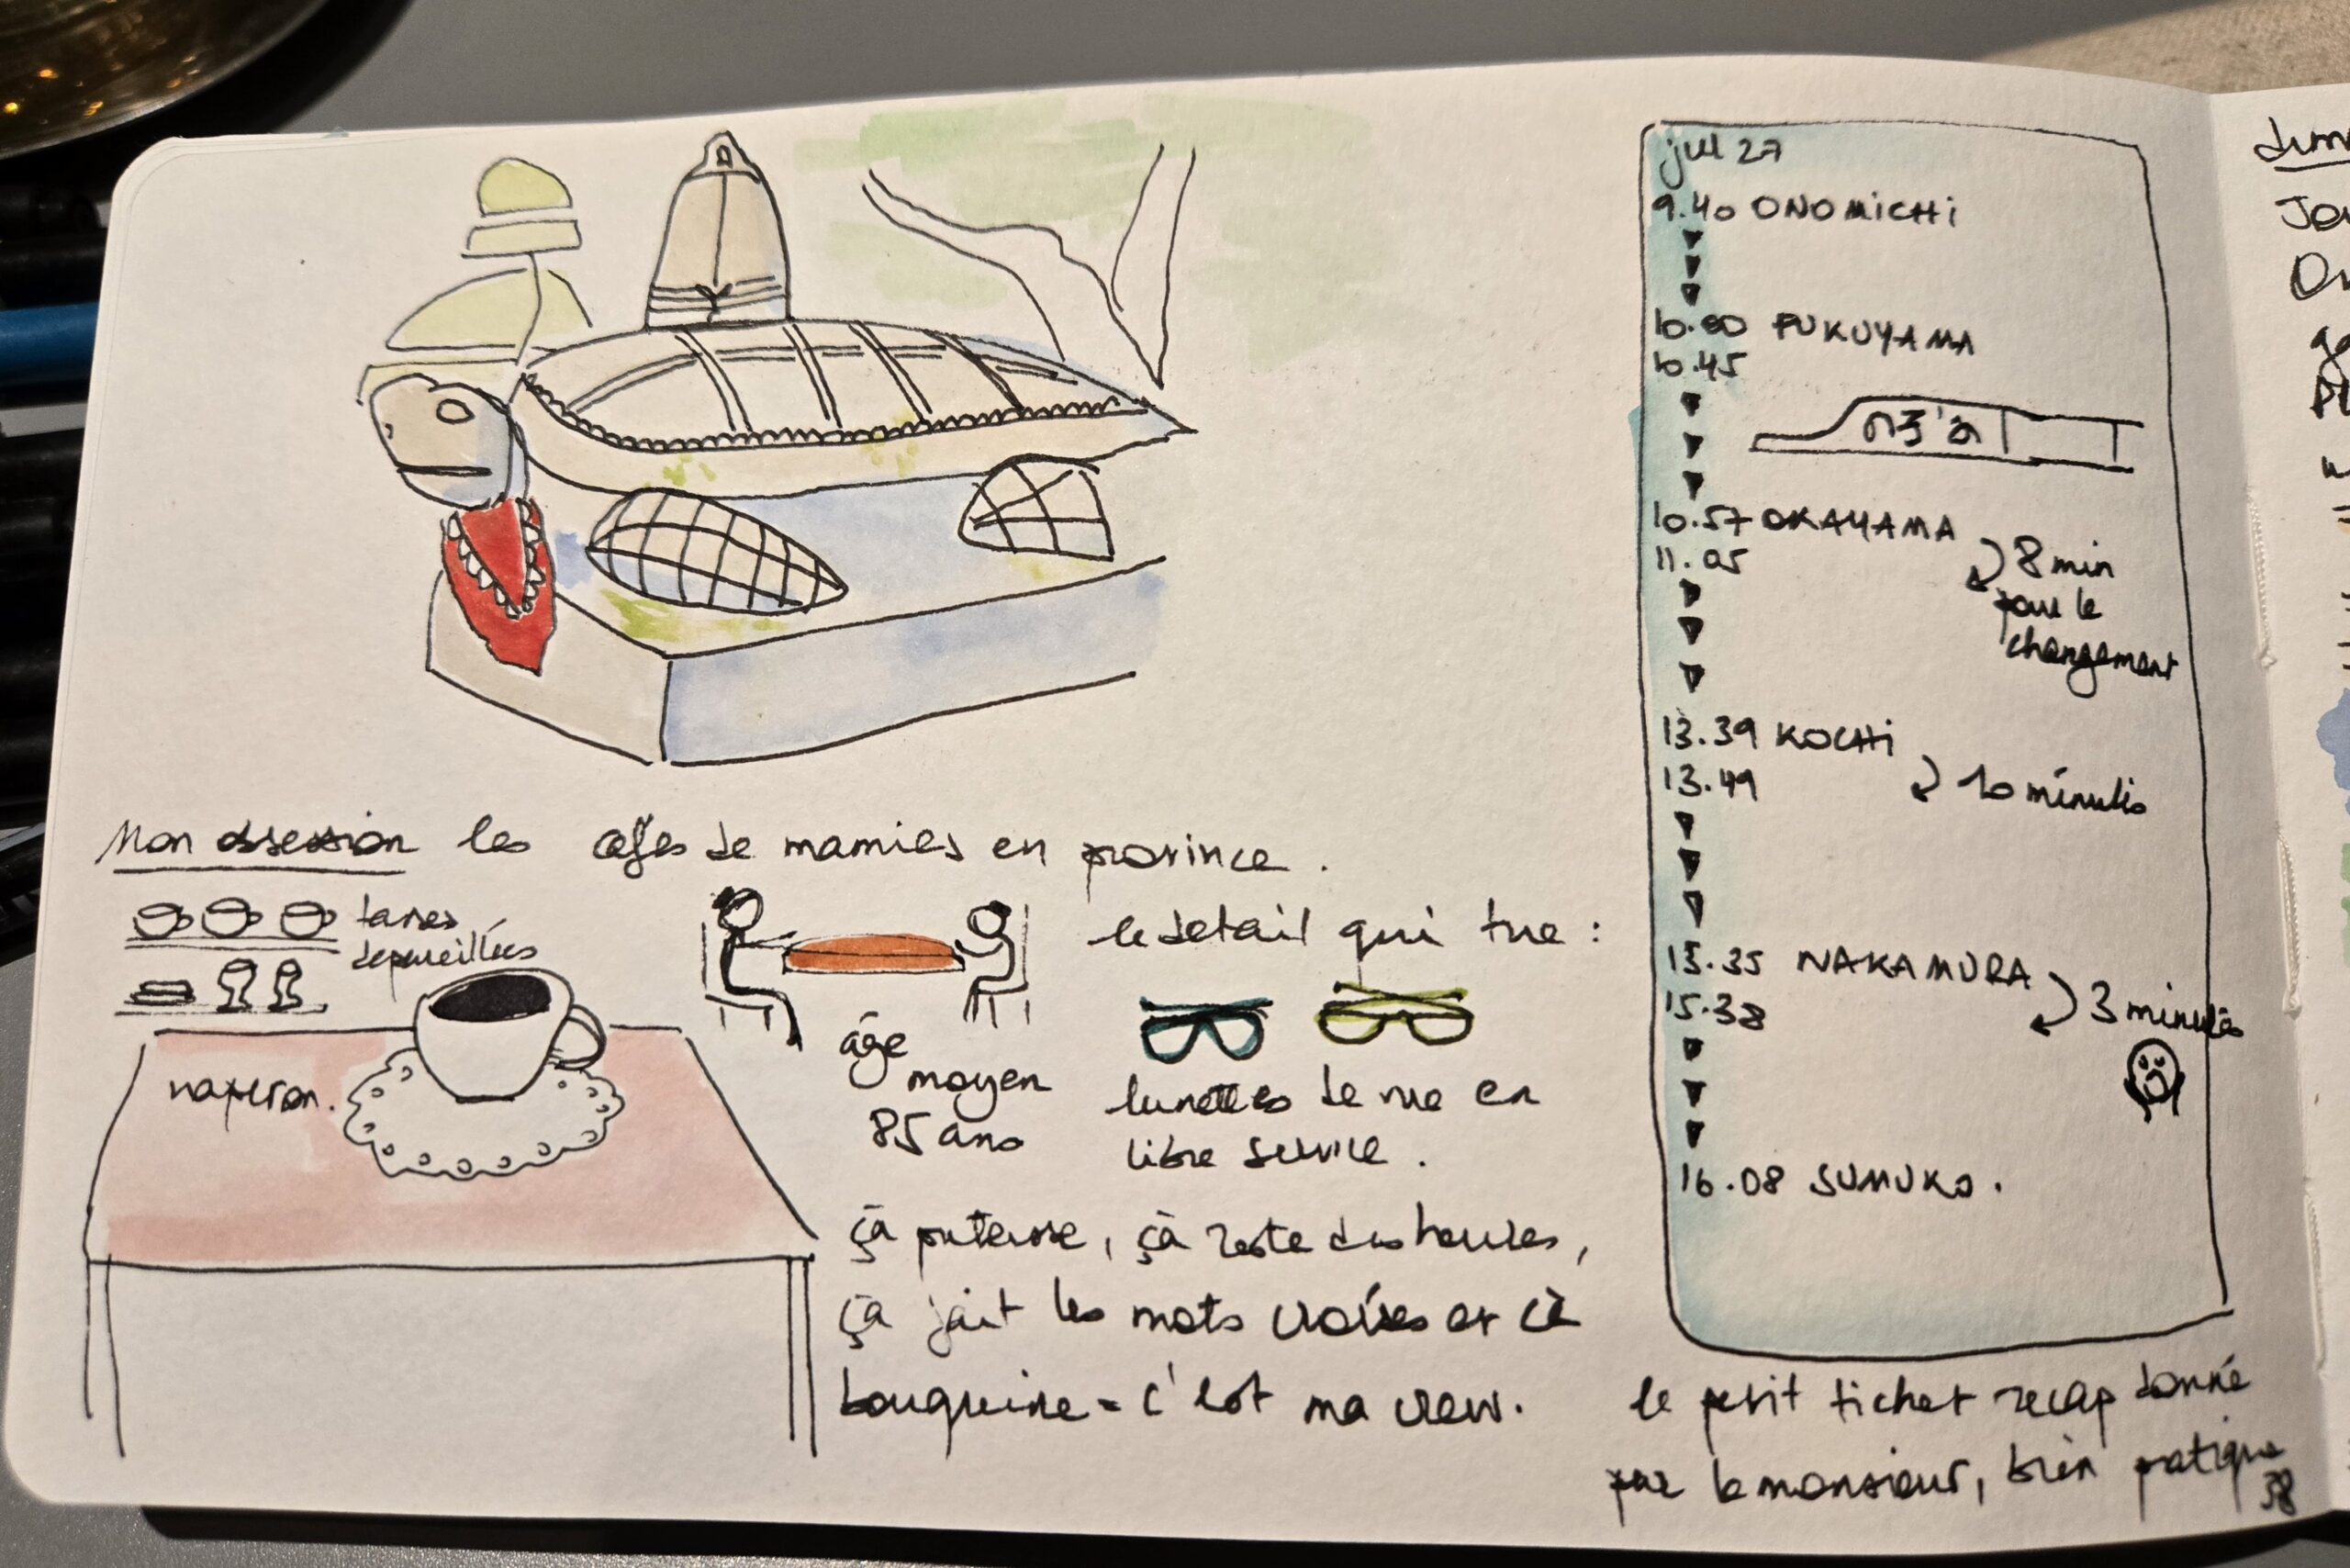 Mon obsession les cafés de mamies en province.
tasses
depareillées
naperon.
âge
moyen
85 ans
le detail qui tue :
lunettes de vue en
libre service.
çà papote, çà reste des heures,
çà fait les mots croisés et çà
bouquine = c'est ma crew.
jul 27
9.40 ONOMICHI
10.00 FUKUYAMA
10.45
10.57 OKAYAMA
11.05
8 min
pour le
changement
13.39 KOCHI
13.49
10 minutes
15.35 NAKAMURA
15.38
3 minutes
16.08 SUKUMO.
le petit ticket recap donné
par le monsieur, bien pratique
38